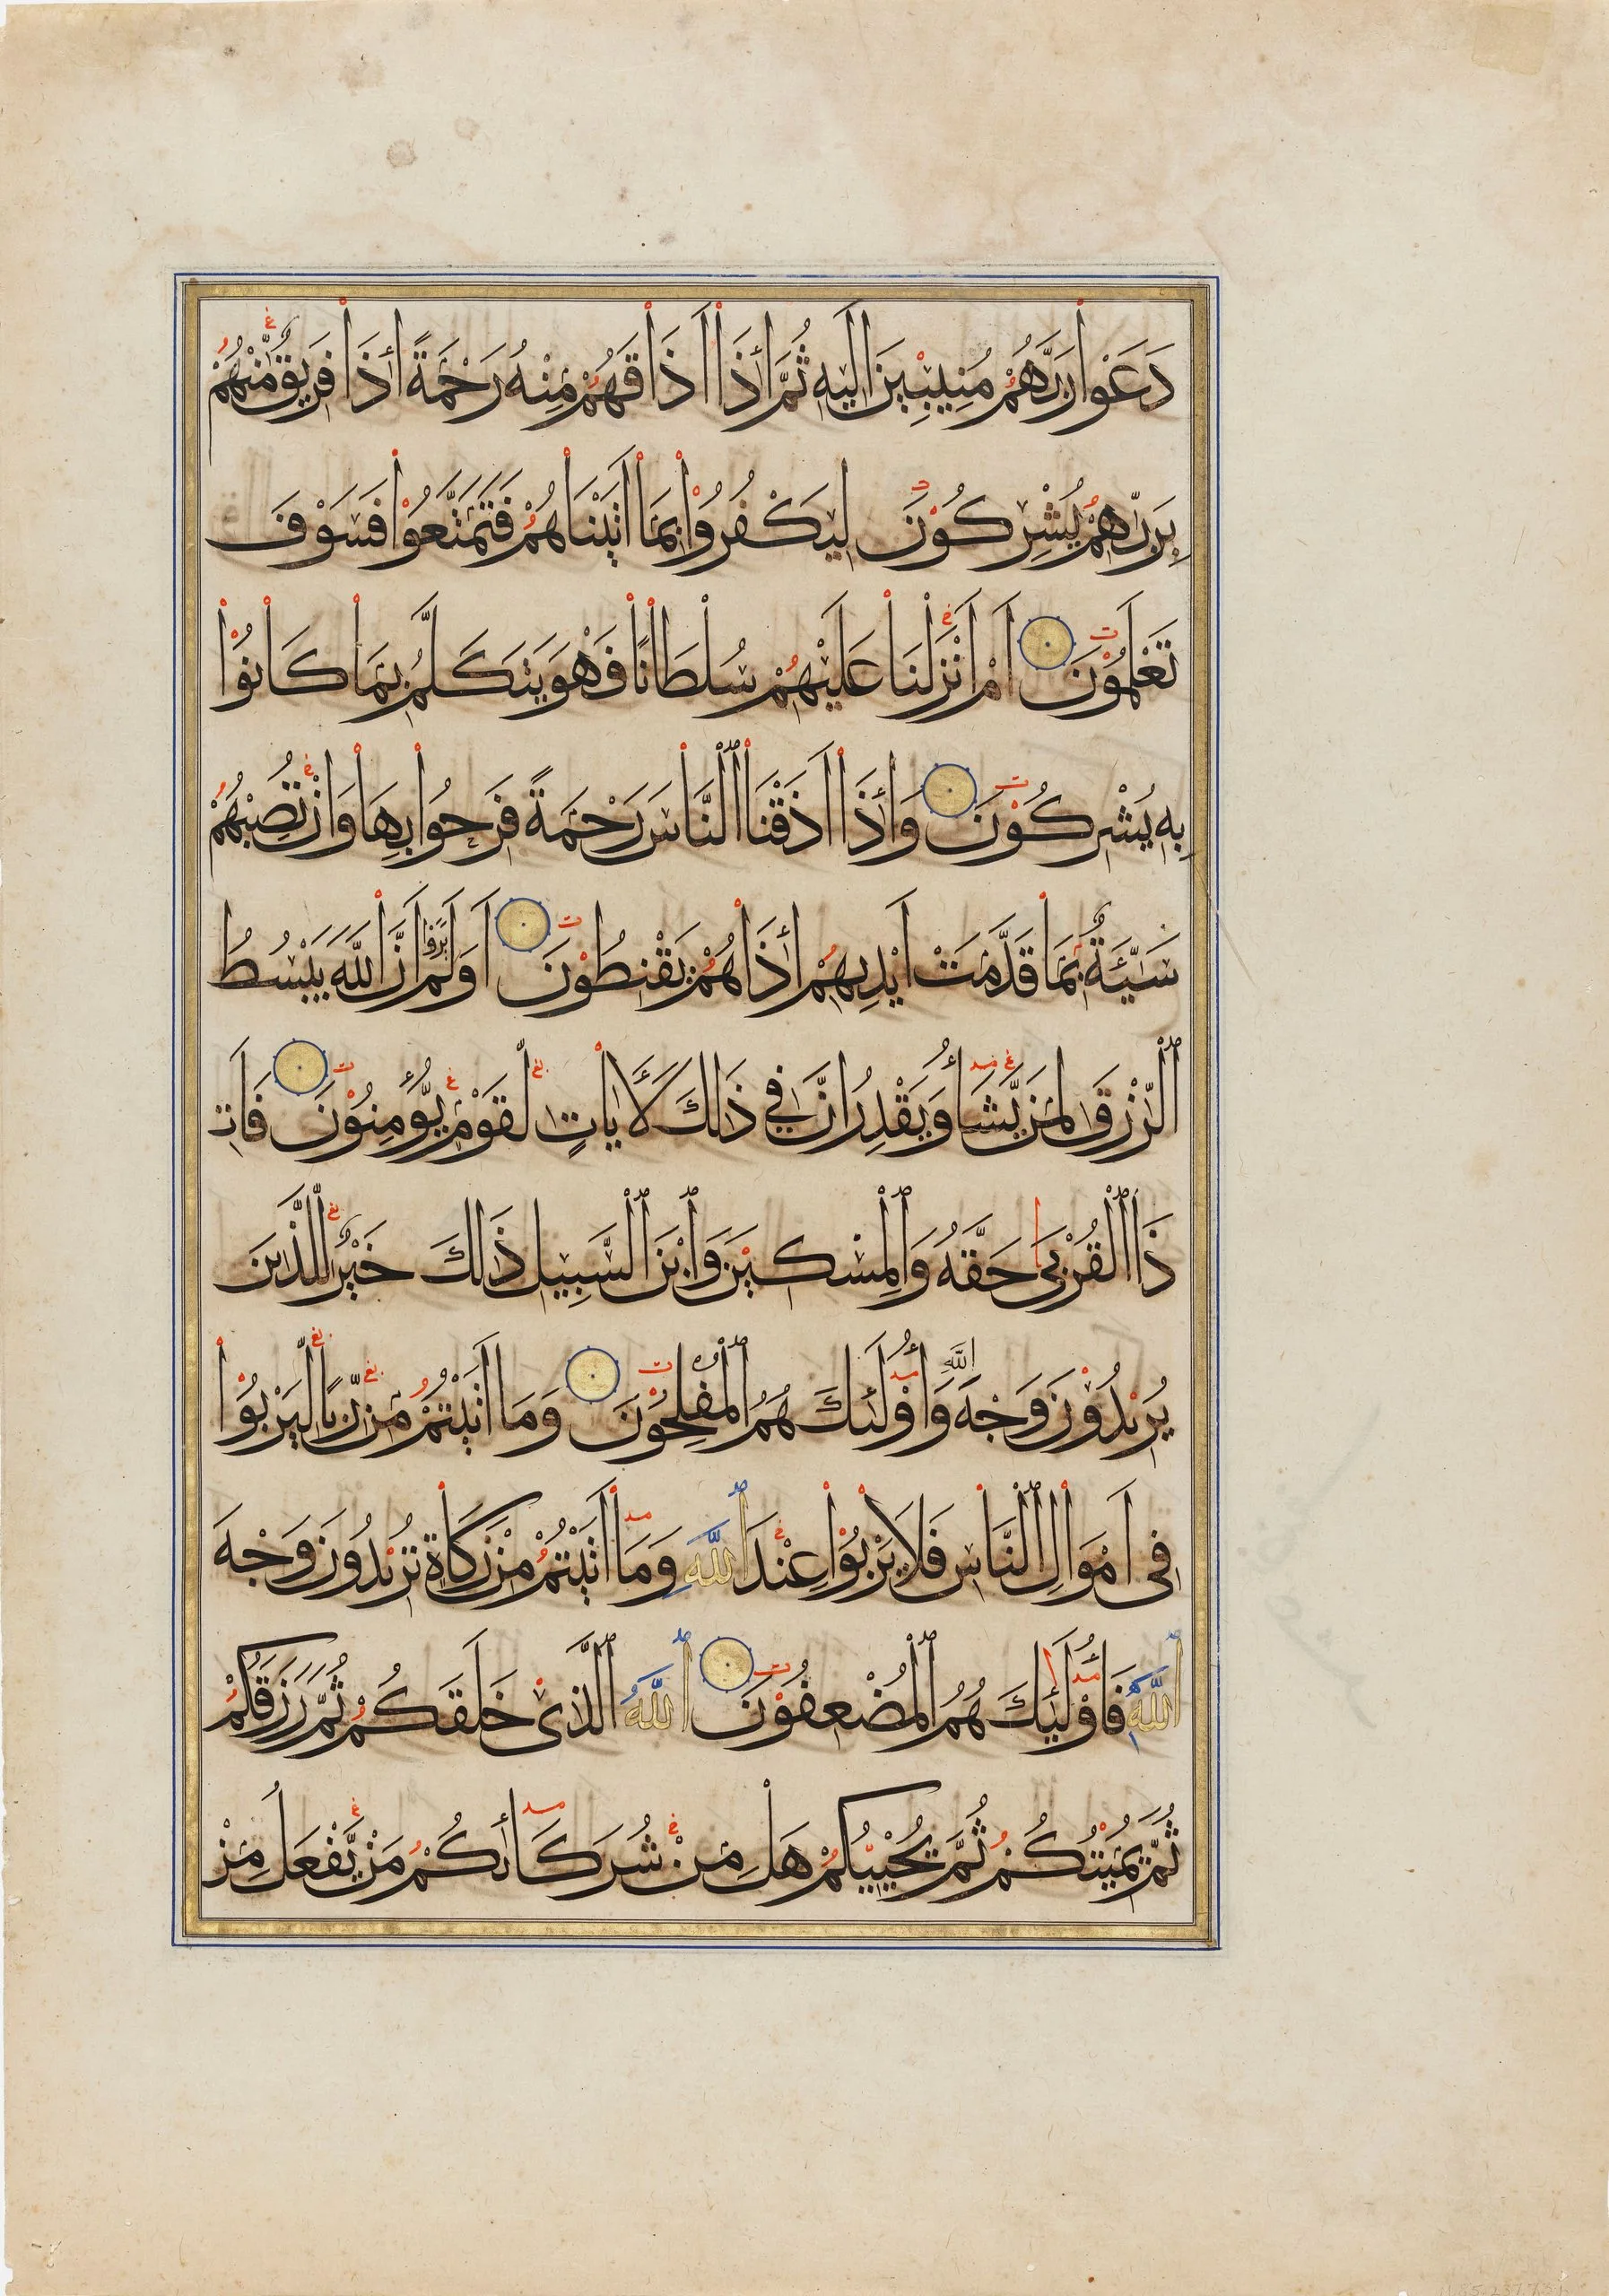 دَعَوْا رَبَّهُمْ مُنِيبِينَ إِلَيْهِ ثُمَّ إِذَا أَذَاقَهُمْ مِنْهُ رَحْمَةً إِذَا فَرِيقٌ مِّنْهُمْ
بِرَبِّهِمْ يُشْرِكُونَ لِيَكْفُرُوا بِمَا اٰتَيْنَاهُمْ فَتَمَتَّعُوْا فَسَوْفَ
تَعْلَمُوْنَ أَمْ أَنْزَلْنَا عَلَيْهِمْ سُلْطَانًا فَهُوَ يَتَكَلَّمُ بِمَا كَانُوْا
بِهِ يُشْرِكُوْنَ وَإِذَا أَذَقْنَا ٱلنَّاسَ رَحْمَةً فَرِحُوا بِهَا وَإِنْ تُصِبْهُمْ
سَيِّئَةٌ بِمَا قَدَّمَتْ أَيْدِيهِمْ إِذَا هُمْ يَقْنَطُوْنَ أَوَلَمْ يَرَوْا أَنَّ اللَّهَ يَبْسُطُ
ٱلرِّزْقَ لِمَنْ يَّشَاءُ وَيَقْدِرُ إِنَّ فِي ذَٰلِكَ لَأٰيَاتٍ لِّقَوْمٍ يُّؤْمِنُوْنَ فَاٰتِ
ذَا ٱلْقُرْبَىٰ حَقَّهُ وَٱلْمِسْكِيْنَ وَٱبْنَ ٱلسَّبِيلِ ذَٰلِكَ خَيْرٌ لِّلَّذِينَ
يُرِيْدُوْنَ وَجْهَ اللَّهِ وَأُوْلَٰئِكَ هُمُ ٱلْمُفْلِحُوْنَ وَمَا اٰتَيْتُمْ مِنْ رِّبًا لِّيَرْبُوَْا
فِي أَمْوَالِ ٱلنَّاسِ فَلَا يَرْبُوْا عِنْدَ ٱللَّهِ وَمَا اٰتَيْتُمْ مِنْ زَكَاةٍ تُرِيْدُوْنَ وَجْهَ
ٱللَّهِ فَأُوْلَٰئِكَ هُمُ ٱلْمُضْعِفُوْنَ ٱللَّهُ ٱلَّذِيْ خَلَقَكُمْ ثُمَّ رَزَقَكُمْ
ثُمَّ يُمِيْتُكُمْ ثُمَّ يُحْيِيْكُمْ هَلْ مِنْ شُرَكَائِكُمْ مَنْ يَّفْعَلُ مِنْ